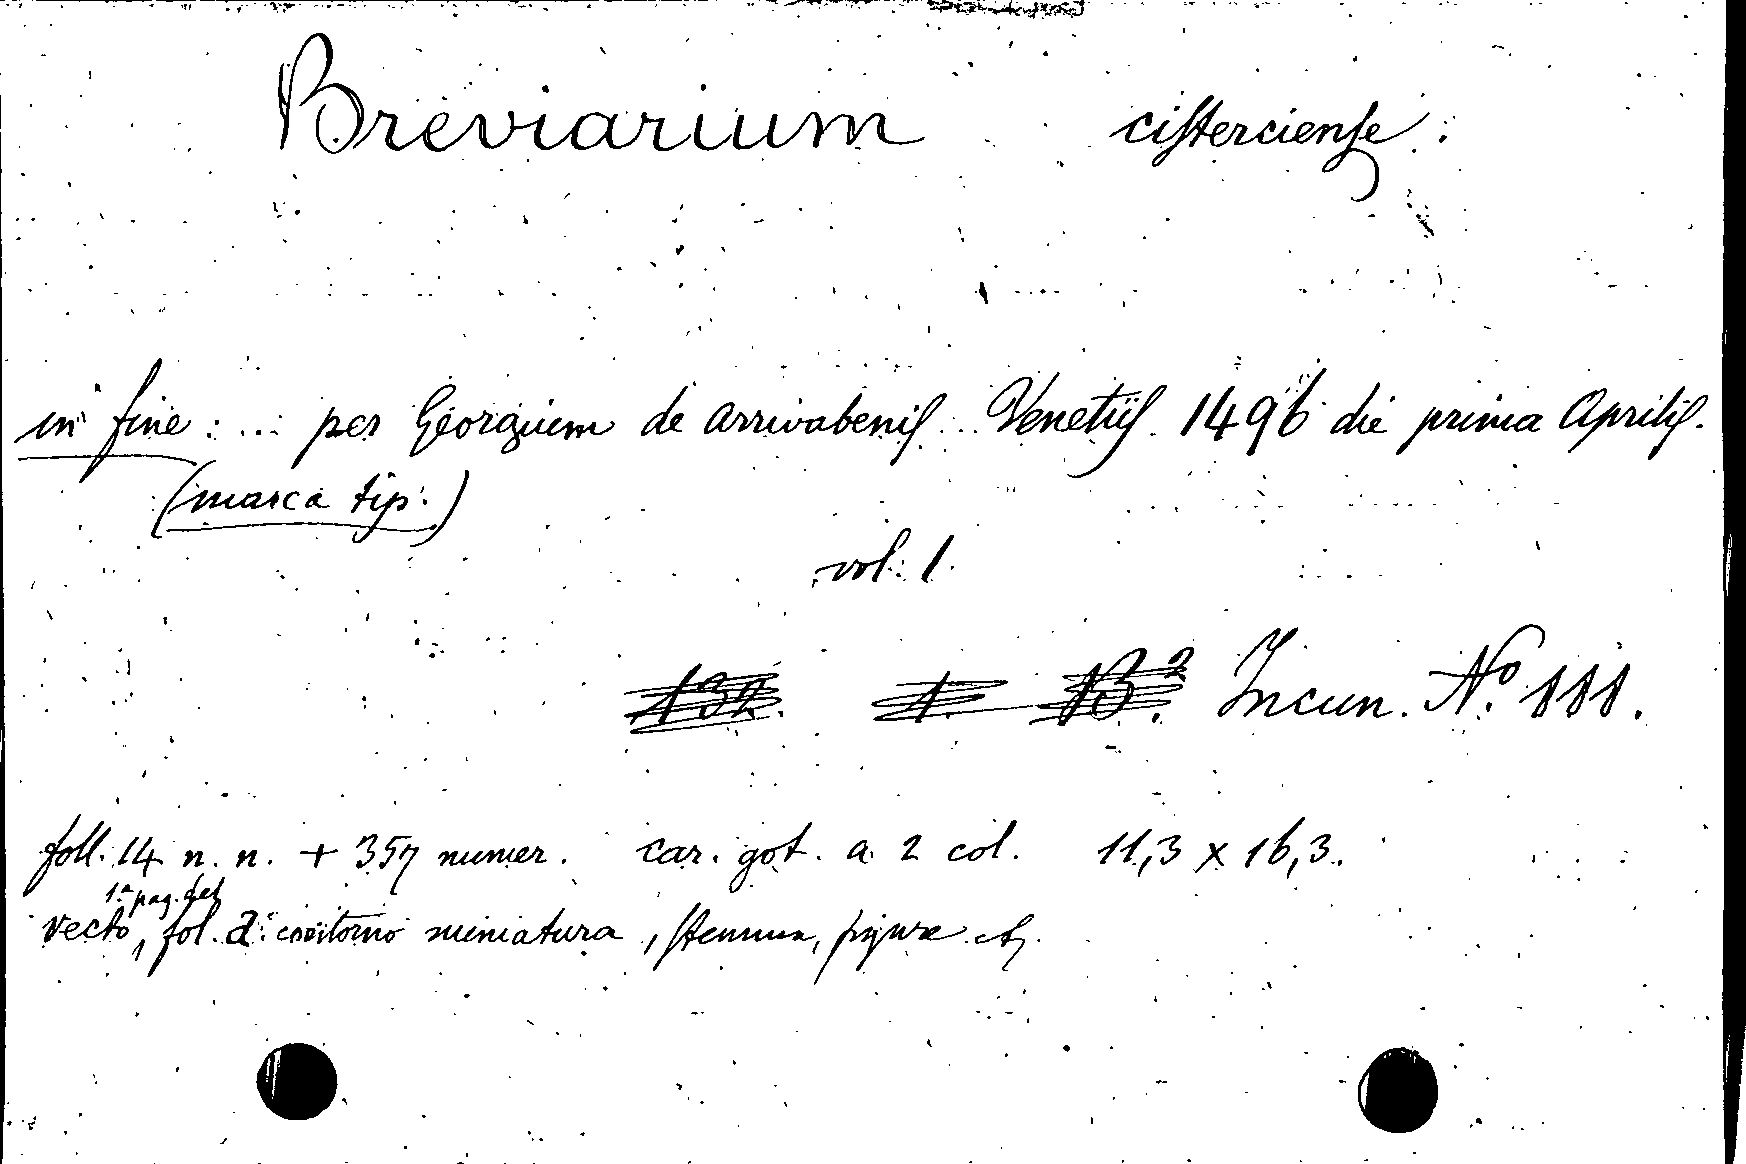 Breviarium cisterciense.
in fine: ... per Georgium de Arrivabenis. Venetiis. 1496 die prima Aprilis.
(marca tip.)
vol. 1.
132. 1. B.2 Incun. No. 111.
foll. 14 n. n. + 357 numer. car. got. a 2 col. 11,3 x 16,3.
1.a pag. del
recto, fol. a: contorno miniatura, stemma, figure